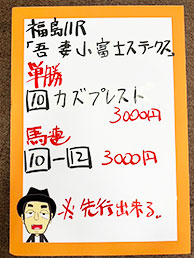 福島11R
「吾妻小富士ステークス」
単勝
10 カズプレスト
3000円
馬連
10-12 3000円
※先行出来る。